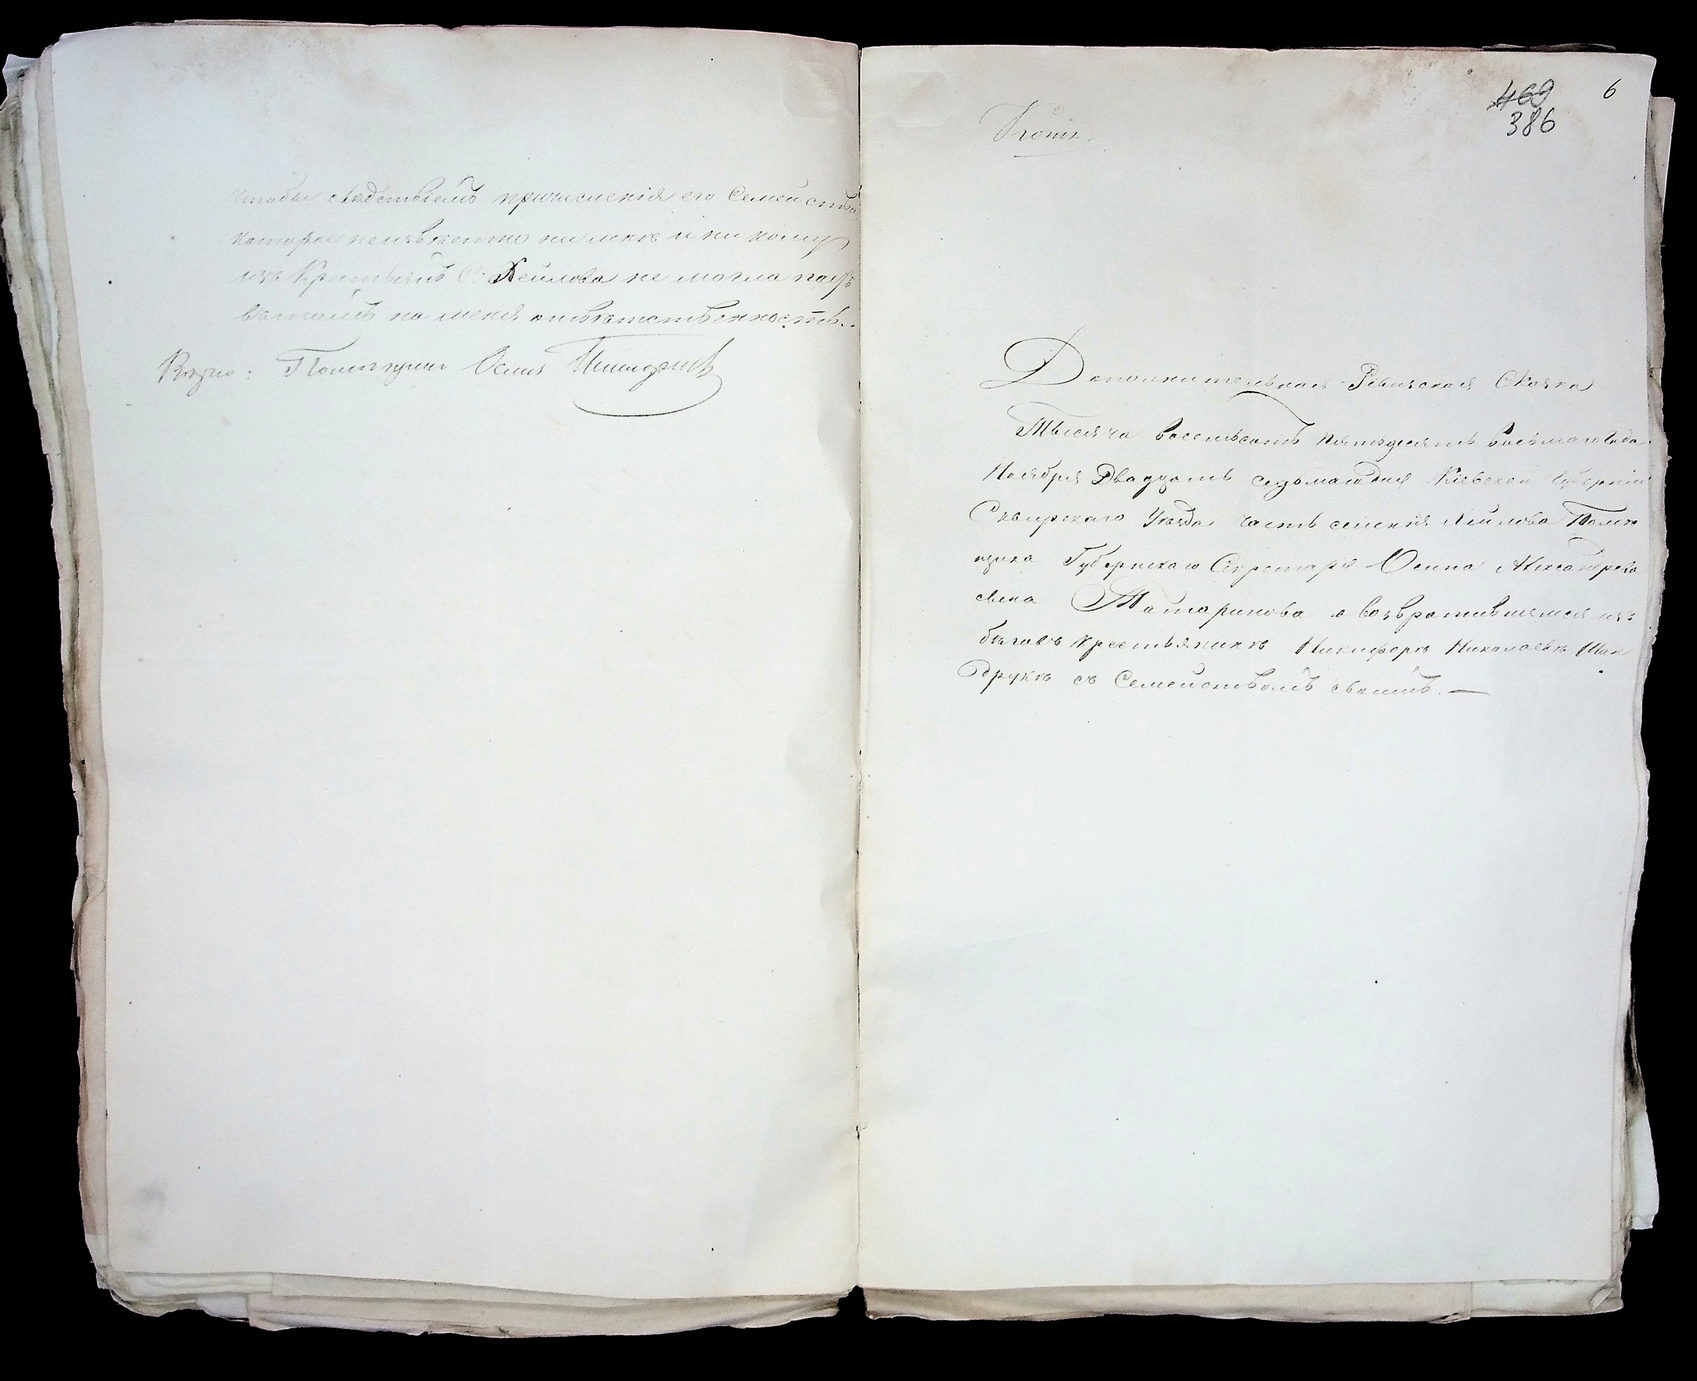 чтобы слѣдствіемъ причисленія его Семейства
которое неизвѣстно ни мнѣ и ни кому
изъ Крестьянъ С. Хейлова не могла
на меня отвѣтственность.
Осипъ
469
386
6
Kopia.
Дополнительная Ревизская Сказка
Тысяча восемьсотъ пятьдесятъ восьмаго Года
Ноября двадцать седьмаго дня Кіевской Губерніи
Сквирскаго Уѣзда часть селенія Хейлова Помѣ
щика Губернскаго Секретаря Осипа Александрова
сына о возвратившемся изъ
бѣговъ крестьянинѣ Никифорѣ Николаевѣ Шан
друкѣ съ Семействомъ своимъ. —